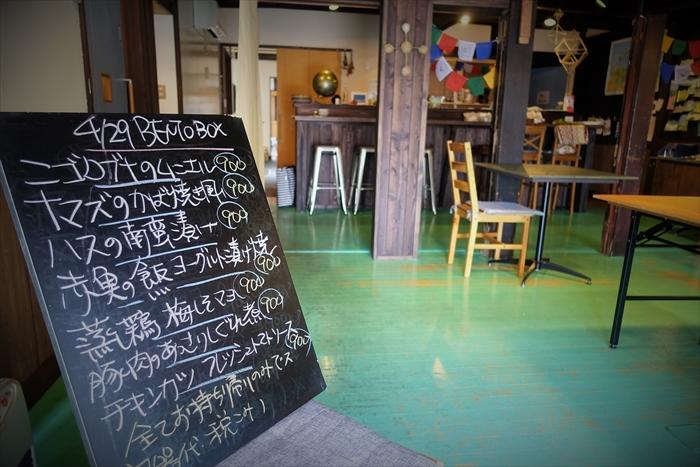 4/29 BENTO BOX
ニゴロブナのムニエル 900
ナマズのかば焼き風 900
ハスの南蛮漬け 900
赤魚の飯ヨーグルト漬け焼 900
蒸し鶏 梅しそマヨ 900
豚肉のあっさりしぐれ煮 900
チキンカツ フレッシュトマトソース 900
全てお持ち帰りのみでス
代 税込!